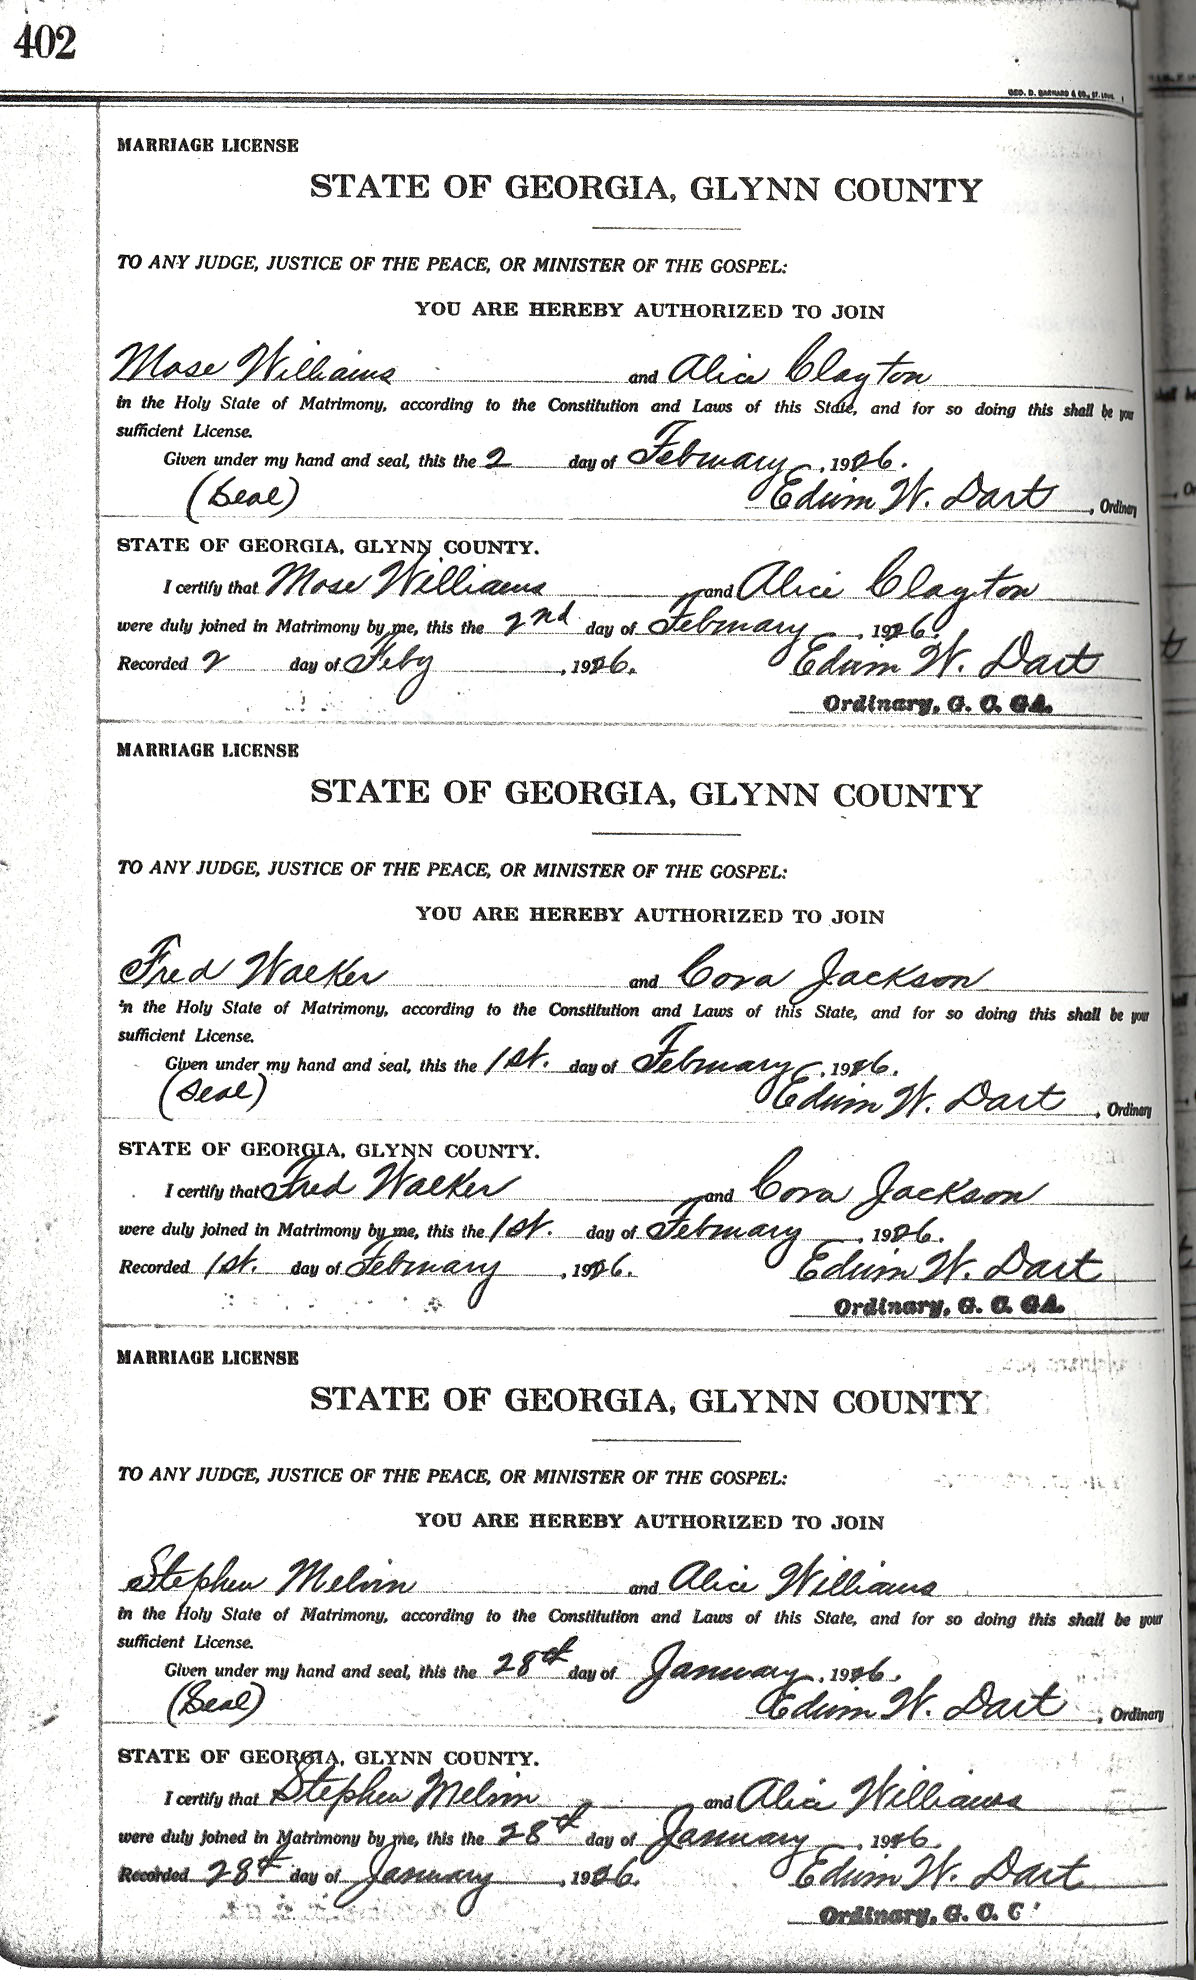 402
GEO. D. BARNARD & CO., ST. LOUIS
MARRIAGE LICENSE
STATE OF GEORGIA, GLYNN COUNTY
TO ANY JUDGE, JUSTICE OF THE PEACE, OR MINISTER OF THE GOSPEL:
YOU ARE HEREBY AUTHORIZED TO JOIN
Mose Williams and Alice Clayton
in the Holy State of Matrimony, according to the Constitution and Laws of this State, and for so doing this shall be your
sufficient License.
Given under my hand and seal, this the 2 day of February, 1926.
(Seal) Edwin W. Dart, Ordinary
STATE OF GEORGIA, GLYNN COUNTY.
I certify that Mose Williams and Alice Clayton
were duly joined in Matrimony by me, this the 2nd day of February, 1926.
Recorded 2 day of Feby, 1926. Edwin W. Dart
Ordinary, G. C. GA.
MARRIAGE LICENSE
STATE OF GEORGIA, GLYNN COUNTY
TO ANY JUDGE, JUSTICE OF THE PEACE, OR MINISTER OF THE GOSPEL:
YOU ARE HEREBY AUTHORIZED TO JOIN
Fred Walker and Cora Jackson
in the Holy State of Matrimony, according to the Constitution and Laws of this State, and for so doing this shall be your
sufficient License.
Given under my hand and seal, this the 1st. day of February, 1926.
(Seal) Edwin W. Dart, Ordinary
STATE OF GEORGIA, GLYNN COUNTY.
I certify that Fred Walker and Cora Jackson
were duly joined in Matrimony by me, this the 1st. day of February, 1926.
Recorded 1st. day of February, 1926. Edwin W. Dart
Ordinary, G. C. GA.
MARRIAGE LICENSE
STATE OF GEORGIA, GLYNN COUNTY
TO ANY JUDGE, JUSTICE OF THE PEACE, OR MINISTER OF THE GOSPEL:
YOU ARE HEREBY AUTHORIZED TO JOIN
Stephen Melvin and Alice Williams
in the Holy State of Matrimony, according to the Constitution and Laws of this State, and for so doing this shall be your
sufficient License.
Given under my hand and seal, this the 28th day of January, 1926.
(Seal) Edwin W. Dart, Ordinary
STATE OF GEORGIA, GLYNN COUNTY.
I certify that Stephen Melvin and Alice Williams
were duly joined in Matrimony by me, this the 28th day of January, 1926.
Recorded 28th day of January, 1926. Edwin W. Dart
Ordinary, G. C. G